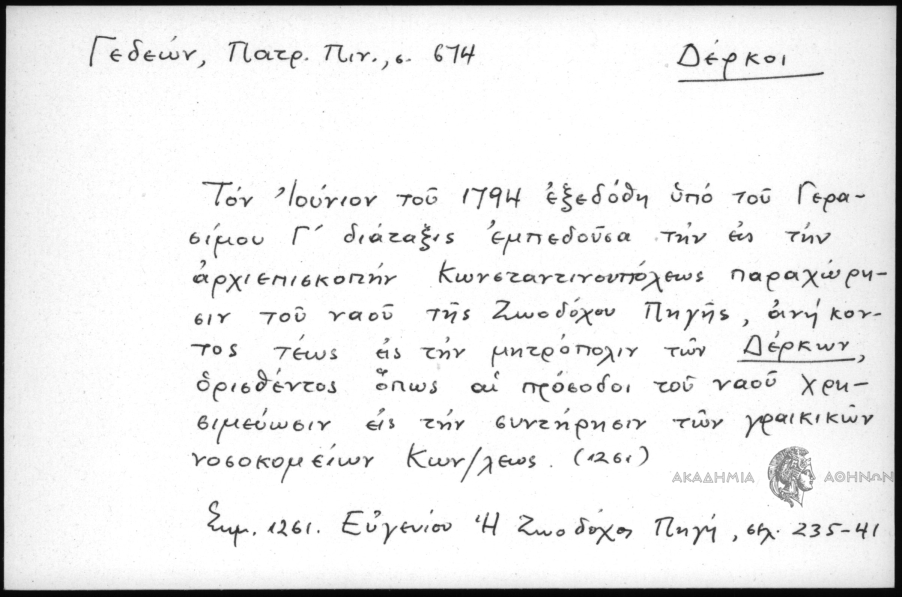 Γεδεών, Πατρ. Πιν., σ. 674 Δέρκοι
Τόν Ἰούνιον τοῦ 1794 ἐξεδόθη ὑπό τοῦ Γερα-
σίμου Γ΄ διάταξις ἐμπεδοῦσα τήν εἰς τήν
ἀρχιεπισκοπήν Κωνσταντινουπόλεως παραχώρη-
σιν τοῦ ναοῦ τῆς Ζωοδόχου Πηγῆς, ἀνήκον-
τος τέως εἰς τήν μητρόπολιν τῶν Δέρκων,
ὁρισθέντος ὅπως αἱ πρόσοδοι τοῦ ναοῦ χρη-
σιμεύωσιν εἰς τήν συντήρησιν τῶν γραικικῶν
νοσοκομείων Κων/λεως. (1251)
ΑΚΑΔΗΜΙΑ ΑΘΗΝΩΝ
Σημ. 1251. Εὐγενίου Ἡ Ζωοδόχος Πηγή, σελ. 235-41